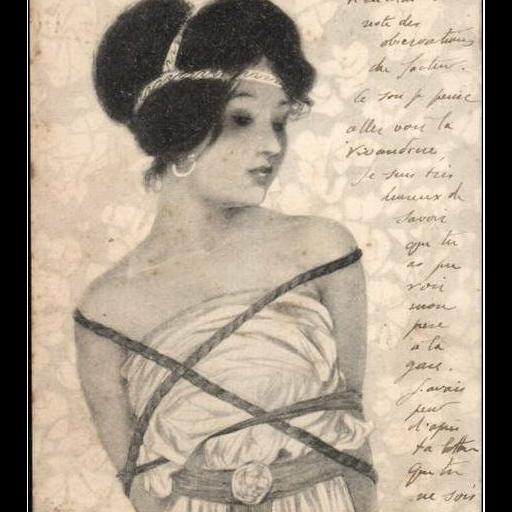 note des
observations
du facteur.
Ce soir je pense
aller voir la
Vivandière,
je suis très
heureux de
savoir
que tu
as pu
voir
mon
père
à la
gare.
J'avais
peur
d'après
ta lettre
que tu
ne sois